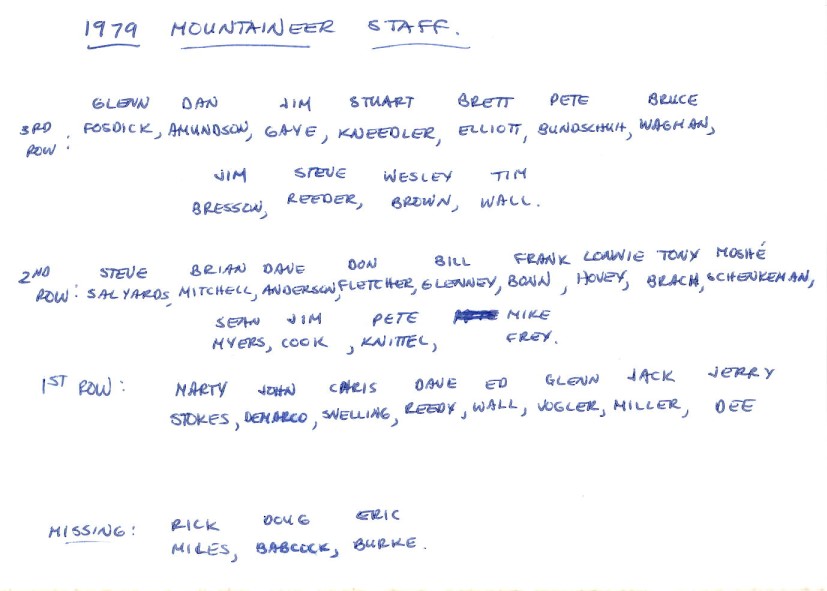 1979 MOUNTAINEER STAFF.
GLENN DAN JIM STUART BRETT PETE BRUCE
3RD ROW: FOSDICK, AMUNDSON, GAYE, KNEEDLER, ELLIOTT, BUNDSCHUH, WAGMAN,
JIM STEVE WESLEY TIM
BRESSON, REEDER, BROWN, WALL.
STEVE BRIAN DAVE DON BILL FRANK LONNIE TONY MOSHÉ
2ND ROW: SALYARDS, MITCHELL, ANDERSON, FLETCHER, GLENNEY, BONN, HOVEY, BRACH, SCHENKEMAN,
SEAN JIM PETE MIKE
MYERS, COOK, KNITTEL, FREY.
MARTY JOHN CHRIS DAVE ED GLENN JACK JERRY
1ST ROW: STOKES, DEMARCO, SNELLING, REEDY, WALL, VOGLER, MILLER, DEE
RICK DOUG ERIC
MISSING: MILES, BABCOCK, BURKE.